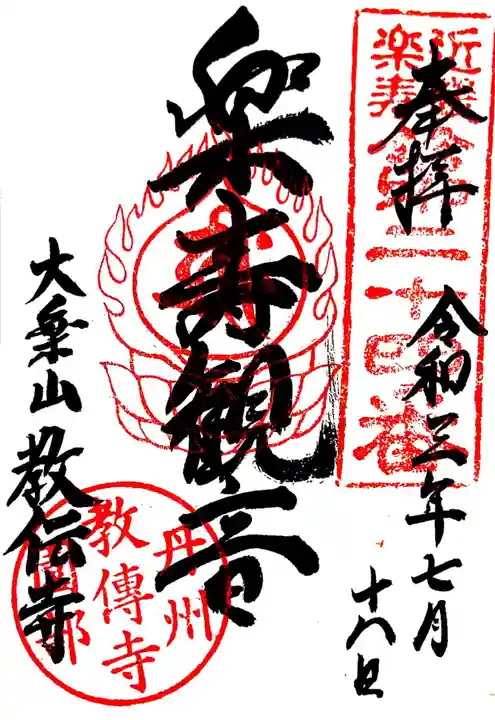 奉拝
令和三年七月
十八日
近畿
楽寿
第二十四番
楽寿観音
大乗山
教伝寺
丹州
教傳寺
園部